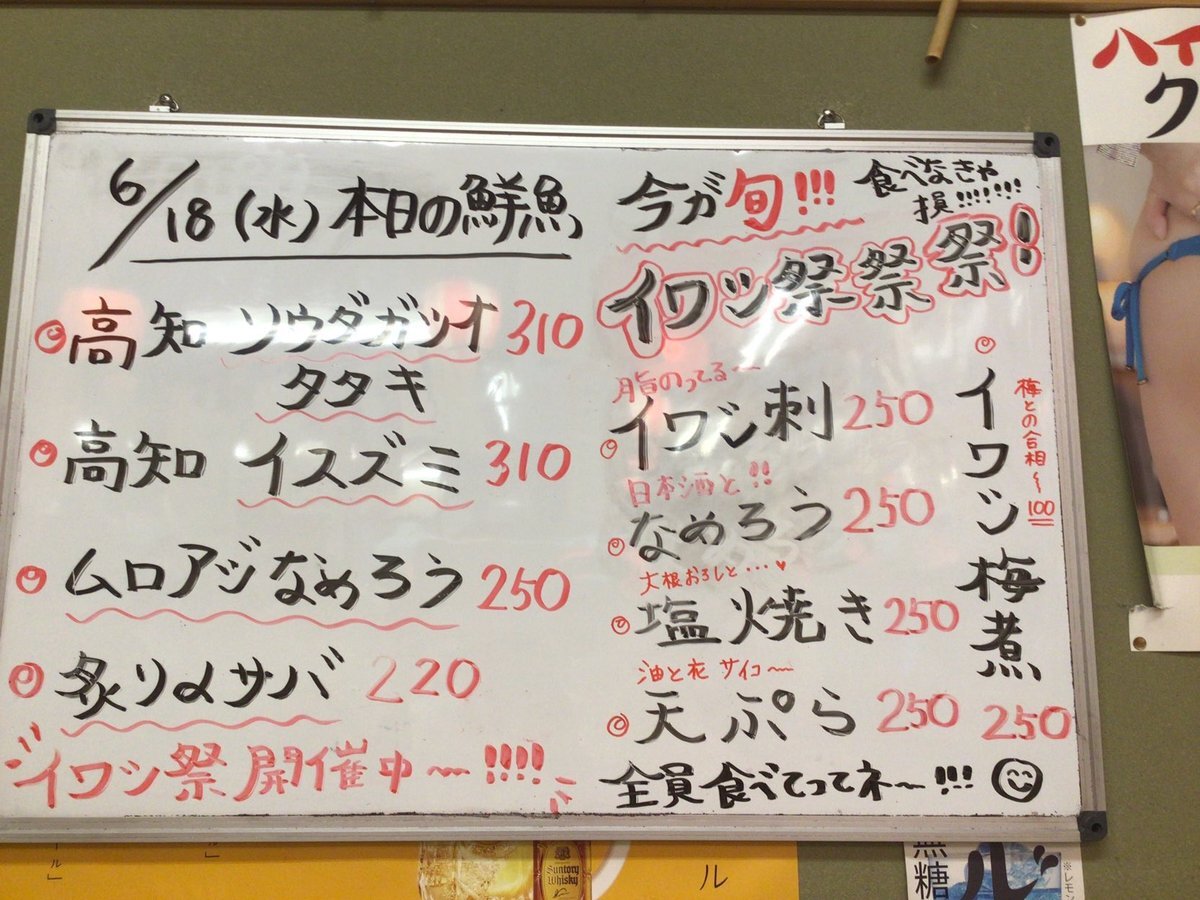 6/18(水)本日の鮮魚
高知 ソウダガツオ 310
タタキ
高知 イスズミ 310
ムロアジなめろう 250
炙り〆サバ 220
イワシ祭開催中〜!!!!
今が旬!!!
食べなきゃ
損!!!!!!!
イワシ祭祭祭!
脂のってる〜
イワシ刺 250
日本酒と!!
なめろう 250
大根おろしと・・・♥
塩焼き 250
油と衣 サイコー〜
天ぷら 250
イワシ梅煮
250
梅との合相〜100
全員食べてってネ〜!!!
ハイ
ク
ル
Suntory
Whisky
ル
無糖
ル
※レモン